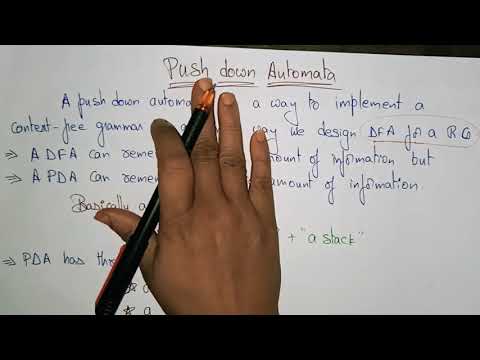 Push down Automata
A push down automa a way to implement a
Context-free grammar way we design DFA for a R.G
⇒ A DFA can reme amount of information but
⇒ A PDA can remem amount of information.
Basically a + "a stack"
⇒ PDA has thr
* a
* a